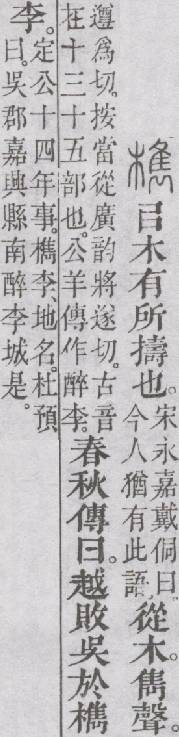 檇㠯木有所擣也。
宋永嘉戴侗曰。
今人猶有此語。
從木。雋聲。
遵爲切。按當從廣韵將遂切。古音
在十三十五部也。公羊傳作醉李。
春秋傳曰。越敗吳於檇
李。
定公十四年事。檇李、地名。杜預
曰。吳郡嘉興縣南醉李城是。